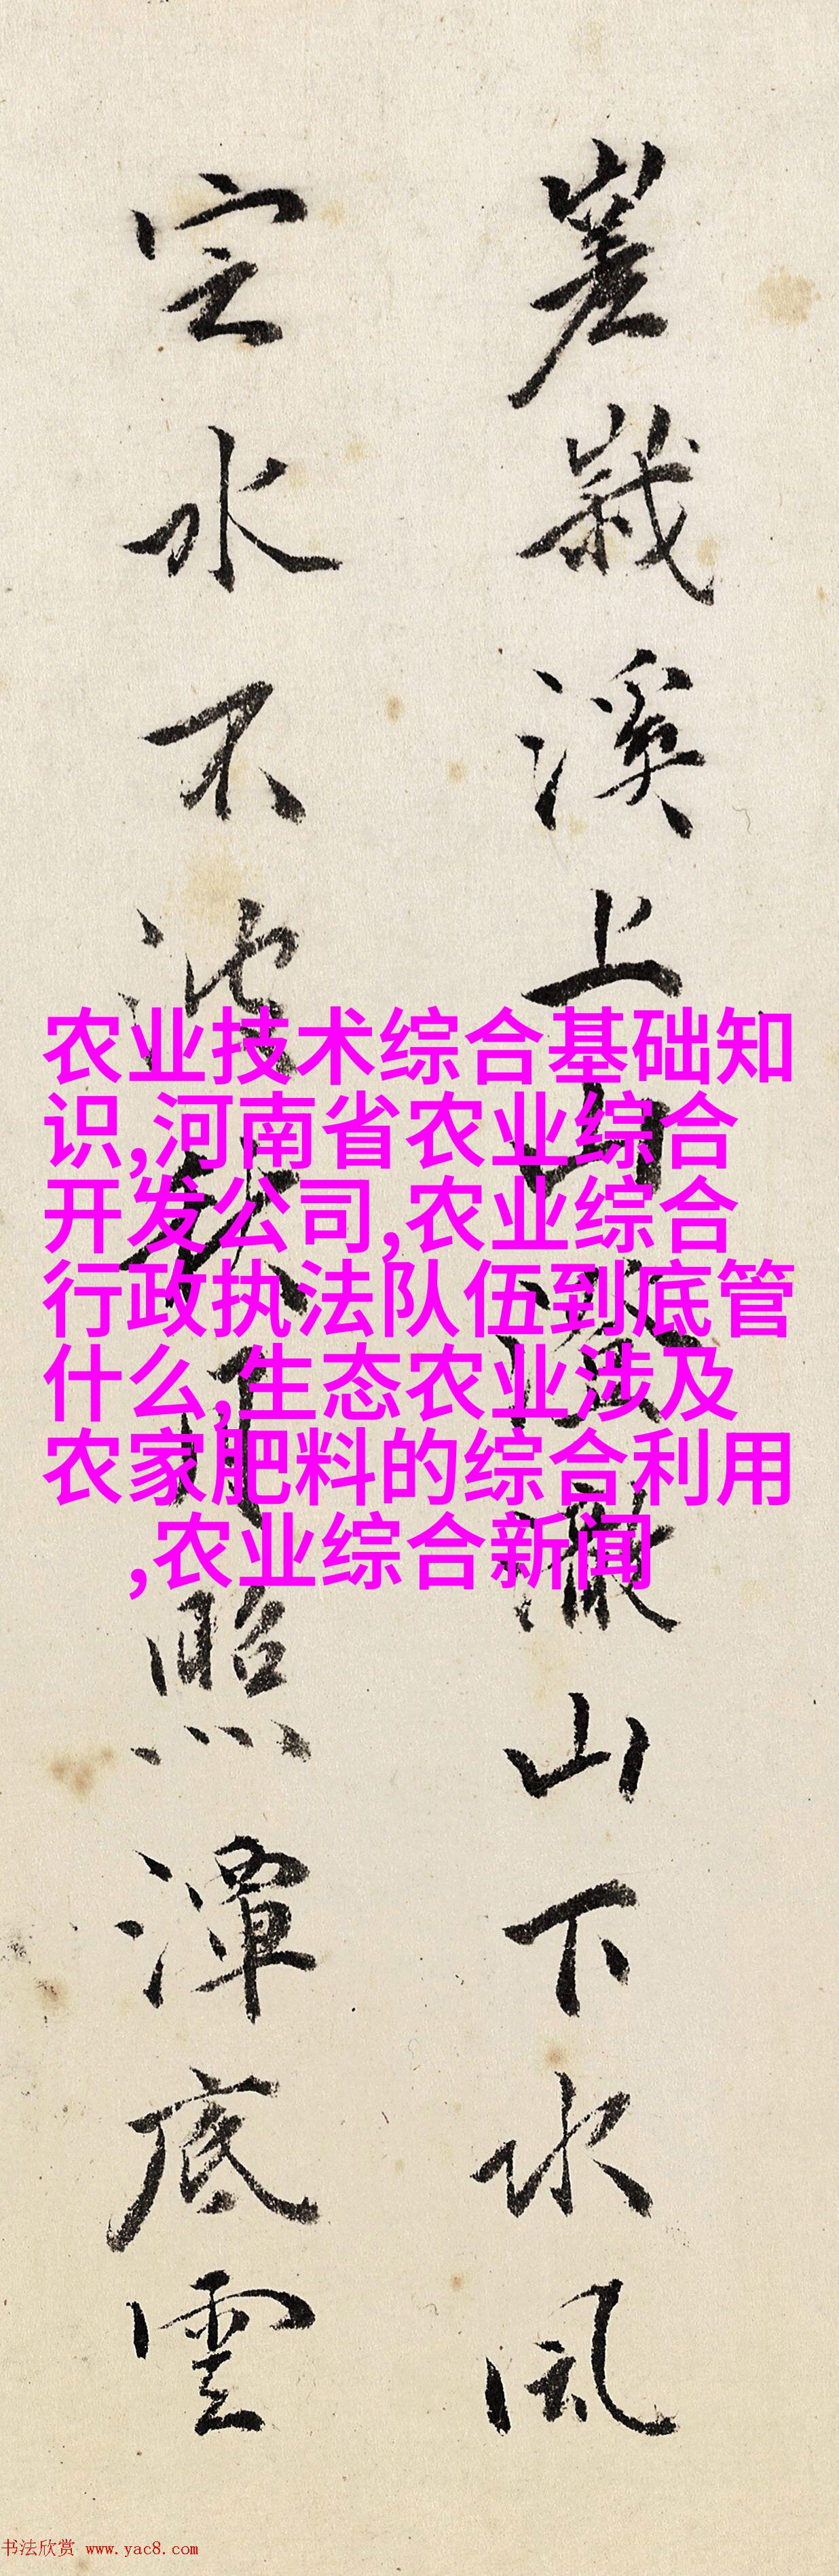 嵳峩溪上山澄澈山下水風
定水不波秋月照潭底雲
农业技术综合基础知
识,河南省农业综合
开发公司,农业综合
行政执法队伍到底管
什么,生态农业涉及
农家肥料的综合利用
,农业综合新闻
书法欣赏 www.yac8.com